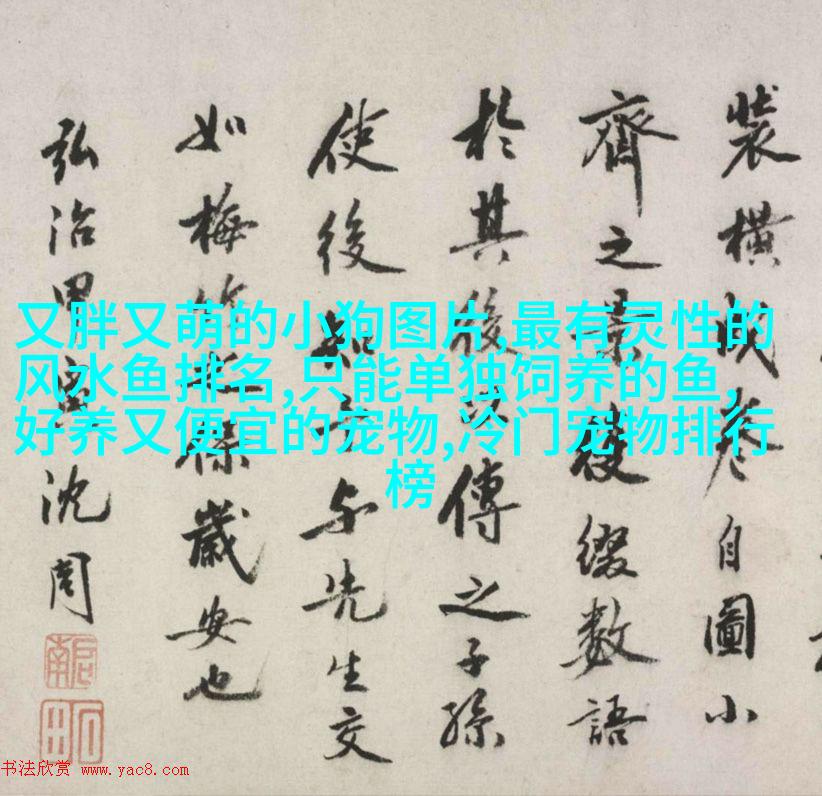 又胖又萌的小狗图片,最有灵性的
风水鱼排名,只能单独饲养的鱼,
好养又便宜的宠物,冷门宠物排行
榜
裝橫成卷自圖小
齊之景後綴數語
於其後以傳之子孫
使後知予与先生交
如梅竹歲安也
弘治甲寅沈周
书法欣赏 www.yac8.com